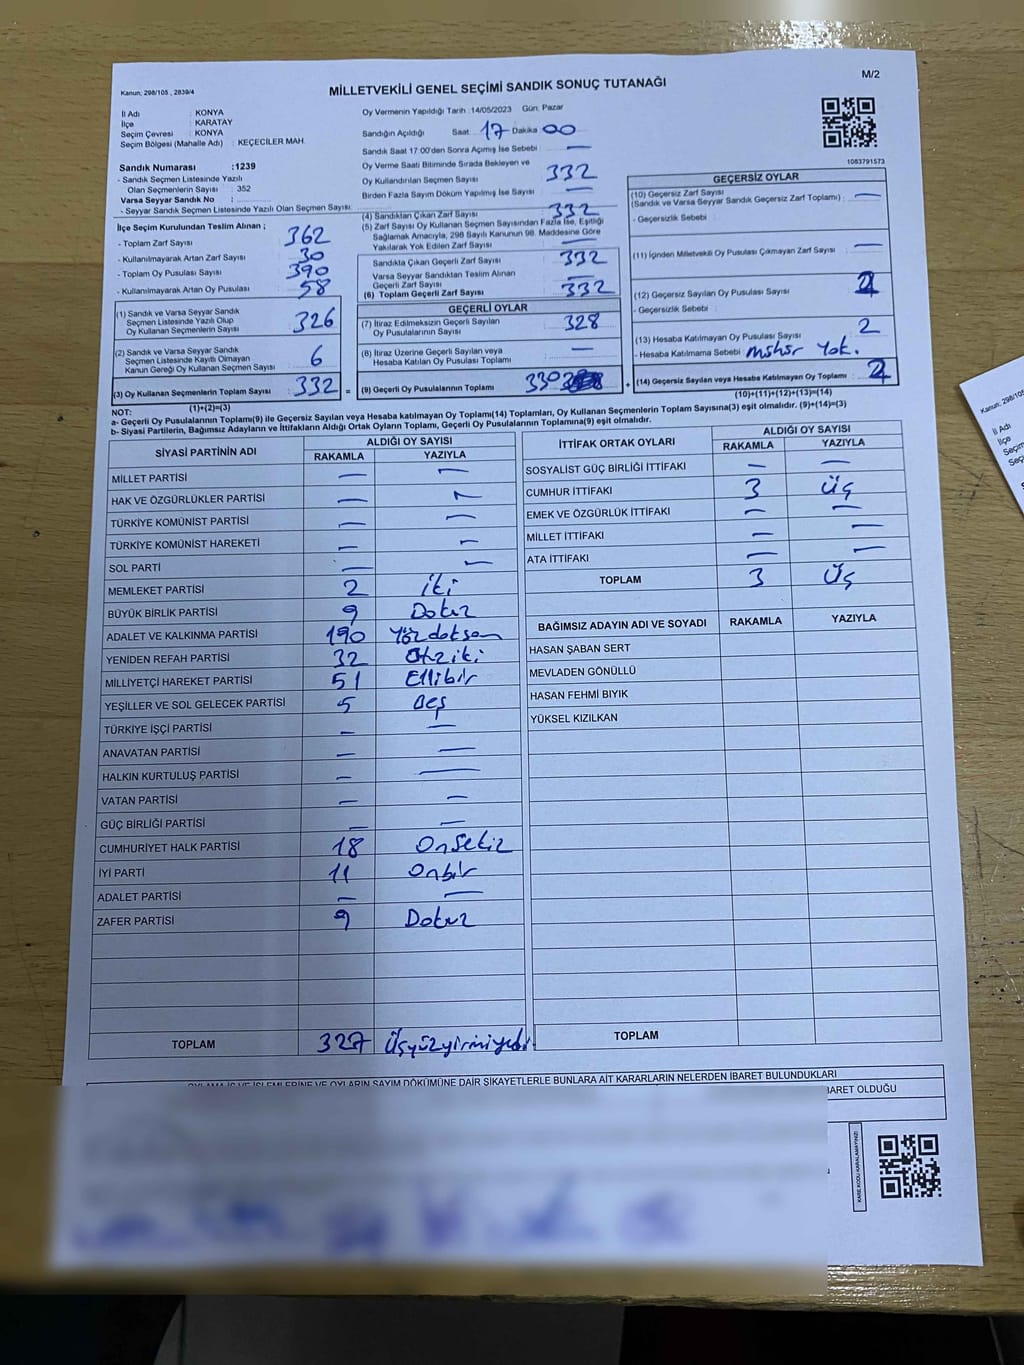 Kanun; 298/105 , 2839/4
MİLLETVEKİLİ GENEL SEÇİMİ SANDIK SONUÇ TUTANAĞI
M/2
İl Adı : KONYA
İlçe : KARATAY
Seçim Çevresi : KONYA
Seçim Bölgesi (Mahalle Adı) : KEÇECİLER MAH.
Sandık Numarası :1239
- Sandık Seçmen Listesinde Yazılı
Olan Seçmenlerin Sayısı : 352
Varsa Seyyar Sandık No :
- Seyyar Sandık Seçmen Listesinde Yazılı Olan Seçmen Sayısı:
İlçe Seçim Kurulundan Teslim Alınan ;
- Toplam Zarf Sayısı : 362
- Kullanılmayarak Artan Zarf Sayısı : 30
- Toplam Oy Pusulası Sayısı : 390
- Kullanılmayarak Artan Oy Pusulası : 58
(1) Sandık ve Varsa Seyyar Sandık
Seçmen Listesinde Yazılı Olup
Oy Kullanan Seçmenlerin Sayısı : 326
(2) Sandık ve Varsa Seyyar Sandık
Seçmen Listesinde Kayıtlı Olmayan
Kanun Gereği Oy Kullanan Seçmen Sayısı : 6
(3) Oy Kullanan Seçmenlerin Toplam Sayısı : 332 =
(1)+(2)=(3)
Oy Vermenin Yapıldığı Tarih :14/05/2023 Gün: Pazar
Sandığın Açıldığı Saat 17 Dakika 00
Sandık Saat 17:00'den Sonra Açımış İse Sebebi : —
Oy Verme Saati Bitiminde Sırada Bekleyen ve
Oy Kullandırılan Seçmen Sayısı : 332
Birden Fazla Sayım Döküm Yapılmış İse Sayısı : —
(4) Sandıktan Çıkan Zarf Sayısı : 332
(5) Zarf Sayısı Oy Kullanan Seçmen Sayısından Fazla İse, Eşitliği
Sağlamak Amacıyla, 298 Sayılı Kanunun 98. Maddesine Göre
Yakılarak Yok Edilen Zarf Sayısı : —
Sandıkta Çıkan Geçerli Zarf Sayısı : 332
Varsa Seyyar Sandıktan Teslim Alınan
Geçerli Zarf Sayısı : —
(6) Toplam Geçerli Zarf Sayısı : 332
GEÇERLİ OYLAR
(7) İtiraz Edilmeksizin Geçerli Sayılan
Oy Pusulalarının Sayısı : 328
(8) İtiraz Üzerine Geçerli Sayılan veya
Hesaba Katılan Oy Pusulası Toplamı : —
(9) Geçerli Oy Pusulalarının Toplamı : 330 +
1083791573
GEÇERSİZ OYLAR
(10) Geçersiz Zarf Sayısı
(Sandık ve Varsa Seyyar Sandık Geçersiz Zarf Toplamı) : —
- Geçersizlik Sebebi :
(11) İçinden Milletvekili Oy Pusulası Çıkmayan Zarf Sayısı : —
(12) Geçersiz Sayılan Oy Pusulası Sayısı :
- Geçersizlik Sebebi :
(13) Hesaba Katılmayan Oy Pusulası Sayısı : 2
- Hesaba Katılmama Sebebi : mühür Yok.
(14) Geçersiz Sayılan veya Hesaba Katılmayan Oy Toplamı : 2
(10)+(11)+(12)+(13)=(14)
NOT:
a- Geçerli Oy Pusulalarının Toplamı(9) ile Geçersiz Sayılan veya Hesaba katılmayan Oy Toplamı(14) Toplamları, Oy Kullanan Seçmenlerin Toplam Sayısına(3) eşit olmalıdır. (9)+(14)=(3)
b- Siyasi Partilerin, Bağımsız Adayların ve İttifakların Aldığı Ortak Oyların Toplamı, Geçerli Oy Pusulalarının Toplamına(9) eşit olmalıdır.
SİYASİ PARTİNİN ADI ALDIĞI OY SAYISI
RAKAMLA YAZIYLA
MİLLET PARTİSİ — —
HAK VE ÖZGÜRLÜKLER PARTİSİ — —
TÜRKİYE KOMÜNİST PARTİSİ — —
TÜRKİYE KOMÜNİST HAREKETİ — —
SOL PARTİ — —
MEMLEKET PARTİSİ 2 iki
BÜYÜK BİRLİK PARTİSİ 9 Dokuz
ADALET VE KALKINMA PARTİSİ 190 Yüzdoksan
YENİDEN REFAH PARTİSİ 32 Otuziki
MİLLİYETÇİ HAREKET PARTİSİ 51 Ellibir
YEŞİLLER VE SOL GELECEK PARTİSİ 5 Beş
TÜRKİYE İŞÇİ PARTİSİ — —
ANAVATAN PARTİSİ — —
HALKIN KURTULUŞ PARTİSİ — —
VATAN PARTİSİ — —
GÜÇ BİRLİĞİ PARTİSİ — —
CUMHURİYET HALK PARTİSİ 18 Onsekiz
İYİ PARTİ 11 Onbir
ADALET PARTİSİ — —
ZAFER PARTİSİ 9 Dokuz
TOPLAM 327 Üçyüzyirmiyedi
İTTİFAK ORTAK OYLARI ALDIĞI OY SAYISI
RAKAMLA YAZIYLA
SOSYALİST GÜÇ BİRLİĞİ İTTİFAKI — —
CUMHUR İTTİFAKI 3 Üç
EMEK VE ÖZGÜRLÜK İTTİFAKI — —
MİLLET İTTİFAKI — —
ATA İTTİFAKI — —
TOPLAM 3 Üç
BAĞIMSIZ ADAYIN ADI VE SOYADI RAKAMLA YAZIYLA
HASAN ŞABAN SERT
MEVLADEN GÖNÜLLÜ
HASAN FEHMİ BIYIK
YÜKSEL KIZILKAN
TOPLAM
OYLAMA İŞ VE İŞLEMLERİNE VE OYLARIN SAYIM DÖKÜMÜNE DAİR ŞİKAYETLERLE BUNLARA AİT KARARLARIN NELERDEN İBARET BULUNDUKLARI
BARET OLDUĞU
KARE KODU KARALAMAYINIZ!
Kanun; 298/105
İl Adı
İlçe
Seçim
Seç